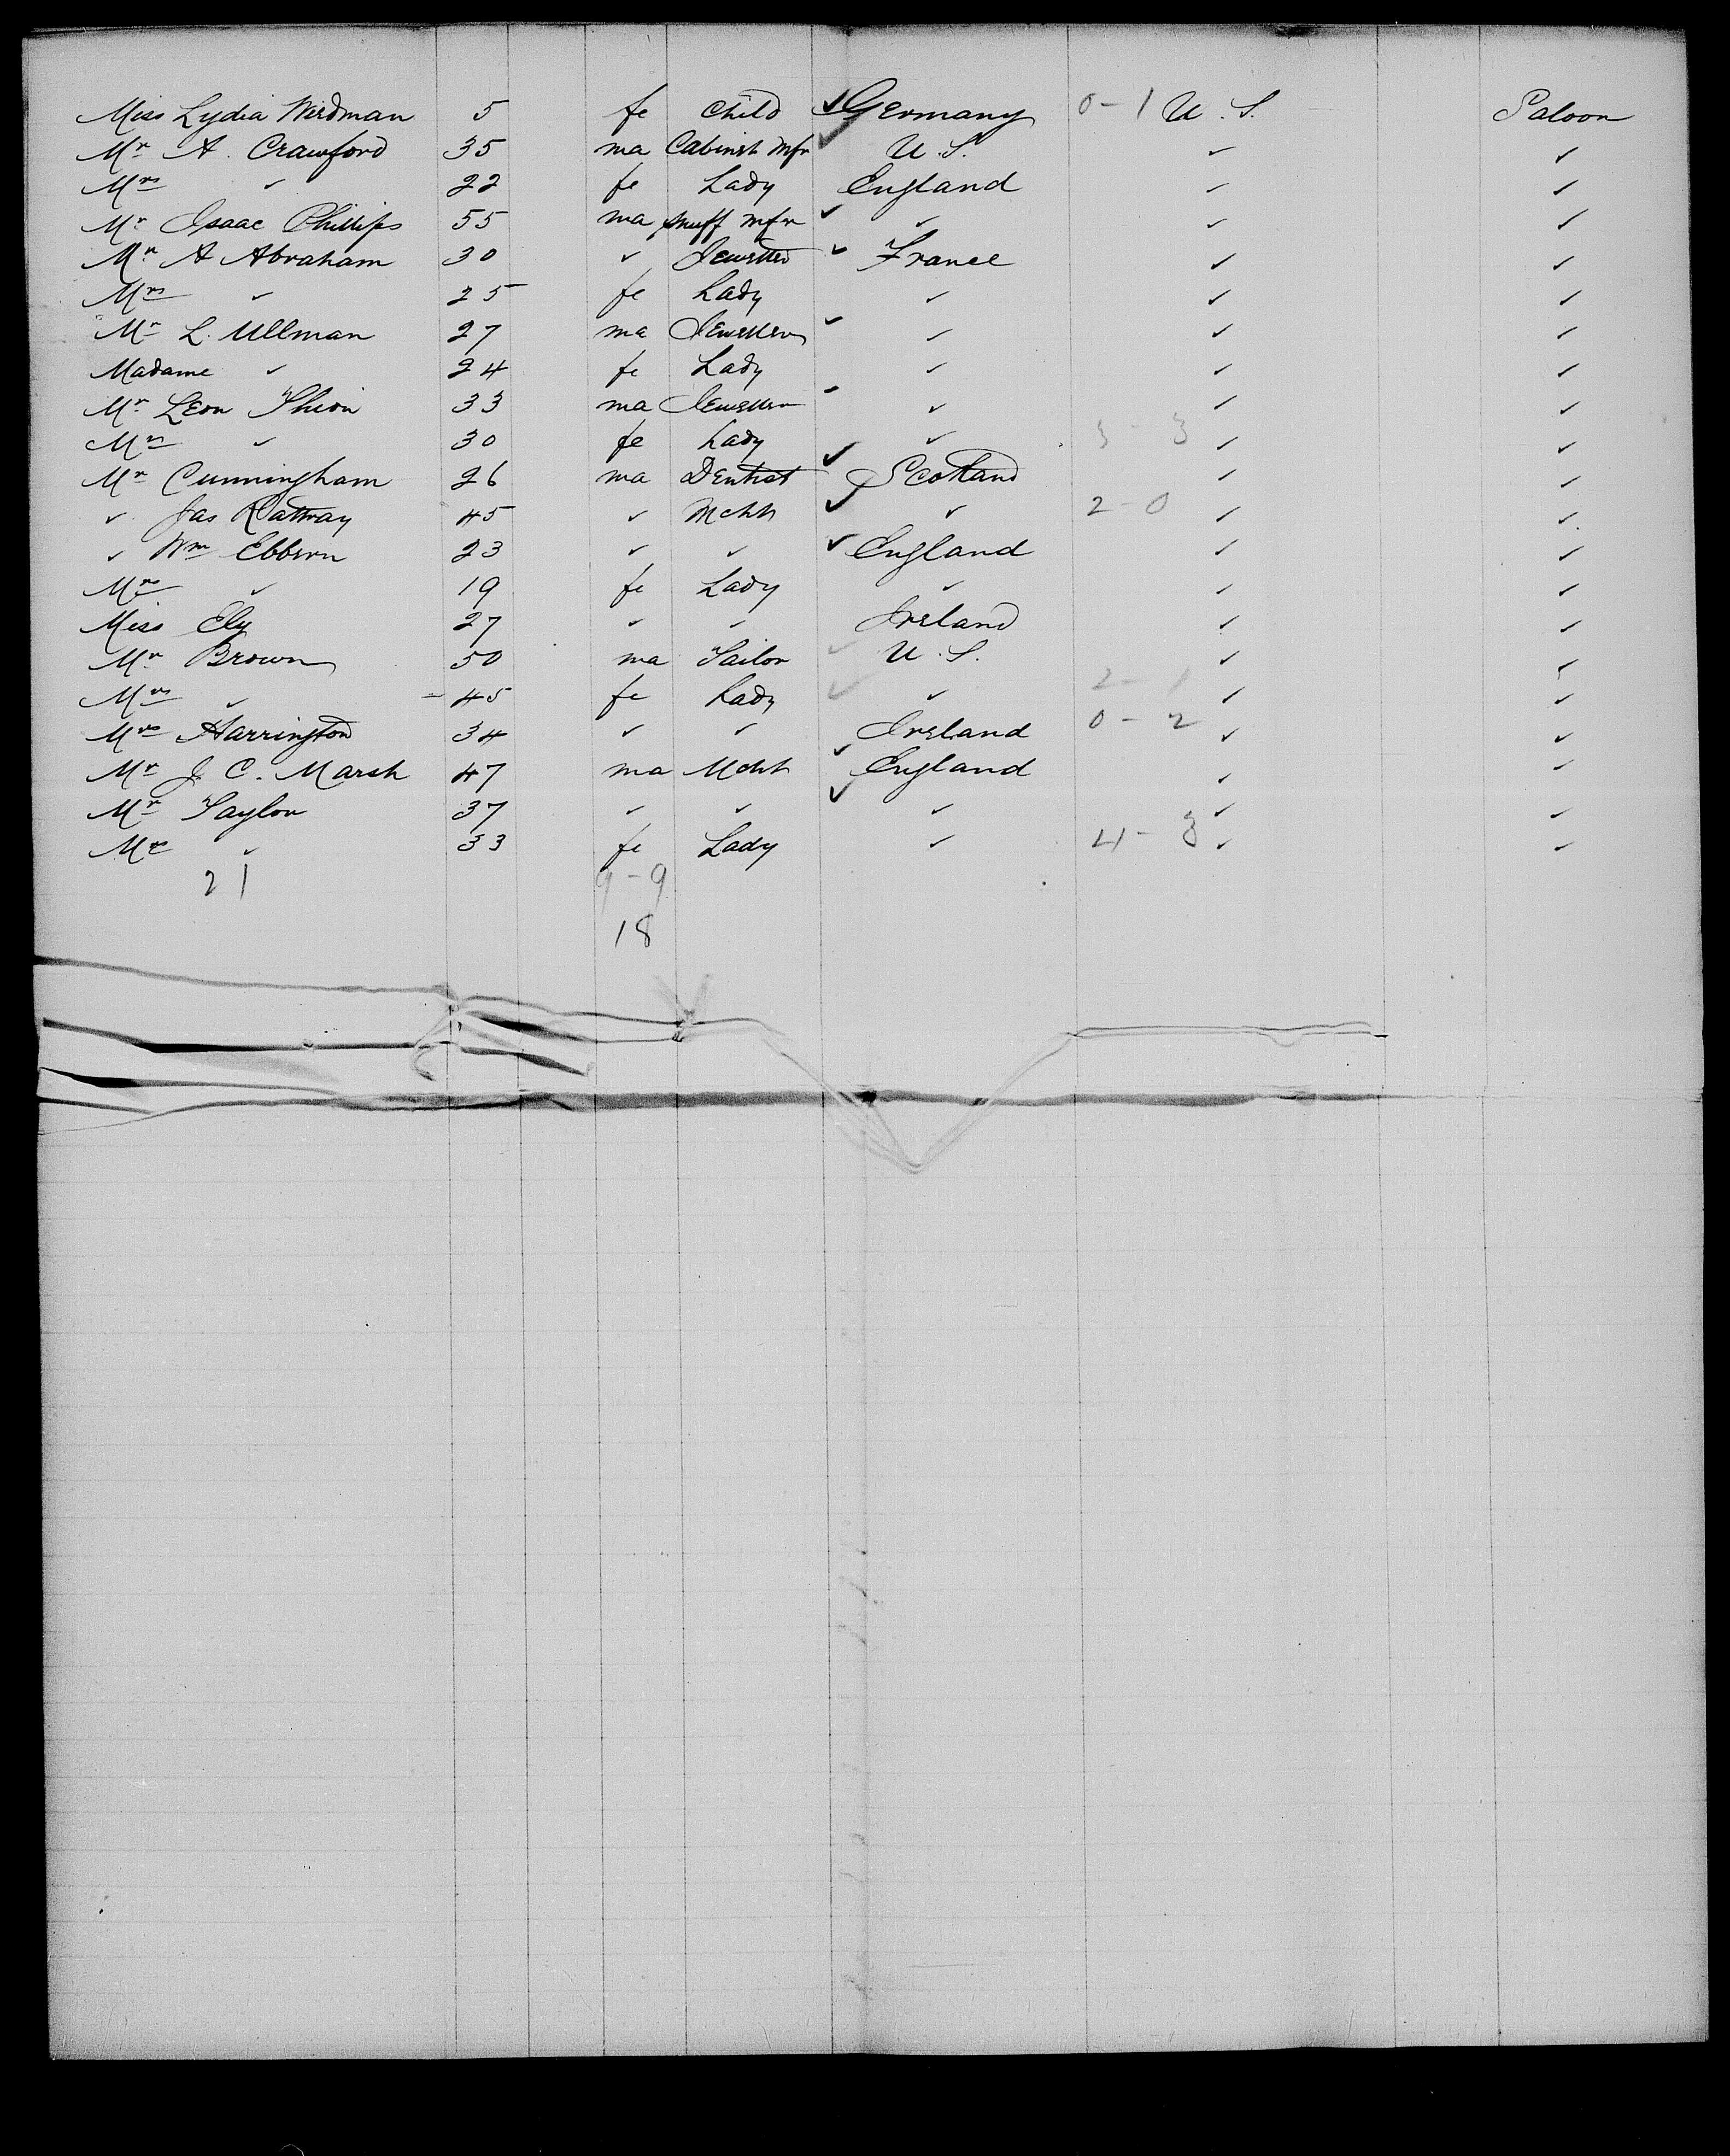 Miss Lydia Wirdman 5 fe Child ✓ Germany 0-1 U.S. Saloon
Mr A. Crawford 35 ma Cabinet Mfr ✓ U.S. ✓ ✓
Mrs ✓ 22 fe Lady England ✓ ✓
Mr Isaac Phillips 55 ma Snuff Mfr ✓ ✓ ✓ ✓
Mr A Abraham 30 ✓ Jeweller ✓ France ✓ ✓
Mrs ✓ 25 fe Lady ✓ ✓ ✓
Mr L. Ullman 27 ma Jeweller ✓ ✓ ✓ ✓
Madame ✓ 24 fe Lady ✓ ✓ ✓
Mr Leon 33 ma Jeweller ✓ ✓ ✓ ✓
Mrs ✓ 30 fe Lady ✓ 3-3 ✓ ✓
Mr Cunningham 26 ma Dentist ✓ Scotland ✓ ✓
✓ Jas Rattray 45 ✓ Mcht ✓ ✓ 2-0 ✓ ✓
✓ Wm Ebbern 23 ✓ ✓ ✓ England ✓ ✓
Mrs ✓ 19 fe Lady ✓ ✓ ✓
Miss Ely 27 ✓ ✓ Ireland ✓ ✓
Mr Brown 50 ma Tailor ✓ U.S. ✓ ✓
Mrs ✓ 45 fe Lady ✓ ✓ 2-1 ✓ ✓
Mrs Harrington 34 ✓ ✓ Ireland 0-2 ✓ ✓
Mr J. C. Marsh 47 ma Mcht ✓ England ✓ ✓
Mr Taylor 37 ✓ ✓ ✓ ✓ ✓ ✓
Mrs ✓ 33 fe Lady ✓ 4-3 ✓ ✓
21 9-9
18